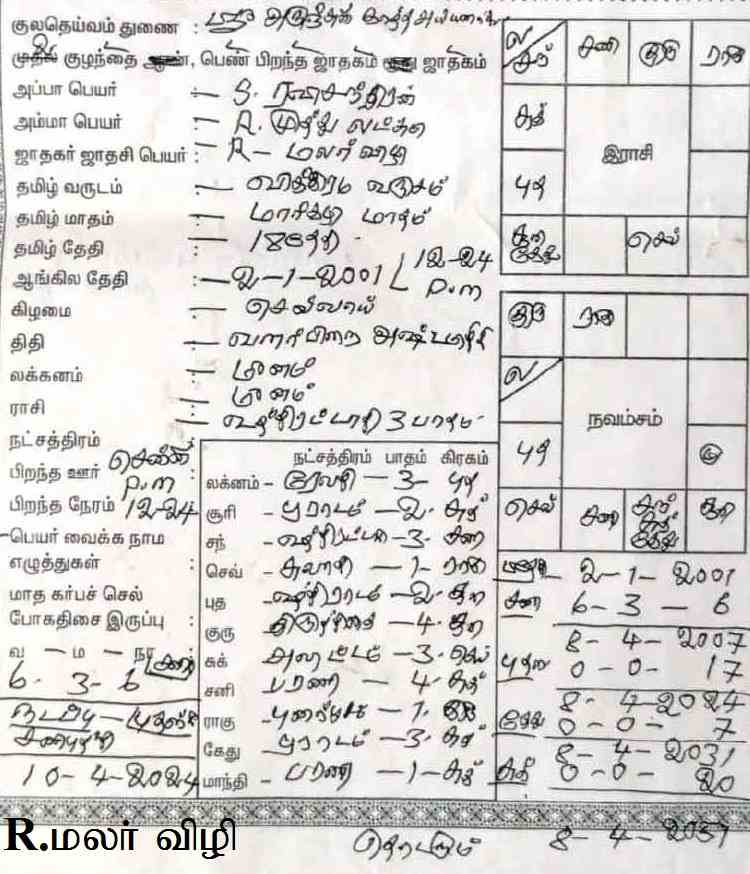 குலதெய்வம் துணை :
முதல் குழந்தை ஆண், பெண் பிறந்த ஜாதகம் ஜாதகம்
அப்பா பெயர் – S. ரவிசந்திரன்
அம்மா பெயர் – R. முத்து லட்சுமி
ஜாதகர் ஜாதசி பெயர் : R – மலர் விழி
தமிழ் வருடம் : – விக்கிரம வருசம்
தமிழ் மாதம் : – மார்கழி மாதம்
தமிழ் தேதி : – 18தேதி
ஆங்கில தேதி : – 2-1-2001 / 12-24 P.m
கிழமை : – செவ்வாய்
திதி : – வளர்பிறை அஷ்டமி திதி
லக்கனம் : – மீனம்
ராசி : – மீனம்
நட்சத்திரம் : – உத்திரட்டாதி 3 பாதம்
பிறந்த ஊர் : சென்னை
பிறந்த நேரம் 12-24 P.m
பெயர் வைக்க நாம
எழுத்துகள் :
மாத கர்பச் செல்
போகதிசை இருப்பு :
வ – ம – நா சனி
6 - 3 - 6
நடப்பு – புதன்
10-4-2024
நட்சத்திரம் பாதம் கிரகம்
லக்னம் – ரேவதி – 3 – புத
சூரி – பூராடம் – 2 – சுக்
சந் – உத்திரட்டாதி – 3 – சனி
செவ் – சுவாதி – 1 – ராகு
புத – உத்திராடம் – 2 – சூரி
குரு – கிருத்திகை – 4 – சூரி
சுக் – அவிட்டம் – 3 – செவ்
சனி – பரணி – 4 – சுக்
ராகு – புனர்பூசம் – 1 – குரு
கேது – பூராடம் – 3 – சுக்
மாந்தி – பரணி – 1 – சுக்
ல சந்
சனி
குரு
ராகு
சுக்
இராசி
புத
சூரி கேது
செவ்
குரு
ராகு
ல
நவம்சம்
புத
செவ்
சனி
சந் சுக் கேது
சூரி
2-1-2001
சனி 6-3-6
8-4-2007
புதன் 0-0-17
8-4-2024
கேது 0-0-7
8-4-2031
சுக் 0-0-20
8-4-2051
R.மலர் விழி
தொடரும்